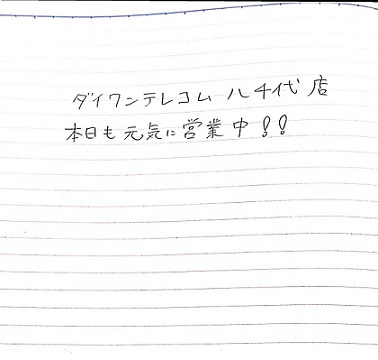 ダイワンテレコム 八千代 店
本日も元気に営業中!!